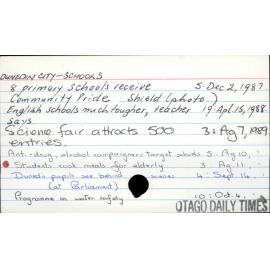 DUNEDIN CITY-SCHOOLS
8 primary schools receive 5: Dec 2, 1987
Community Pride Shield (photo)
English schools much tougher, teacher 19 Apl.15,1988
says.
Science fair attracts 500 3: Ag 7, 1989
entries.
Anti-drug, alcohol campaigners target schools 5: Ag 10, "
Students cook meals for elderly 3 Ag. 11, "
Dunedin pupils see behind scenes 4: Sept 14, "
(at Parliament)
Programme on water safety 10: Oct 4, "
OTAGO DAILY TIMES